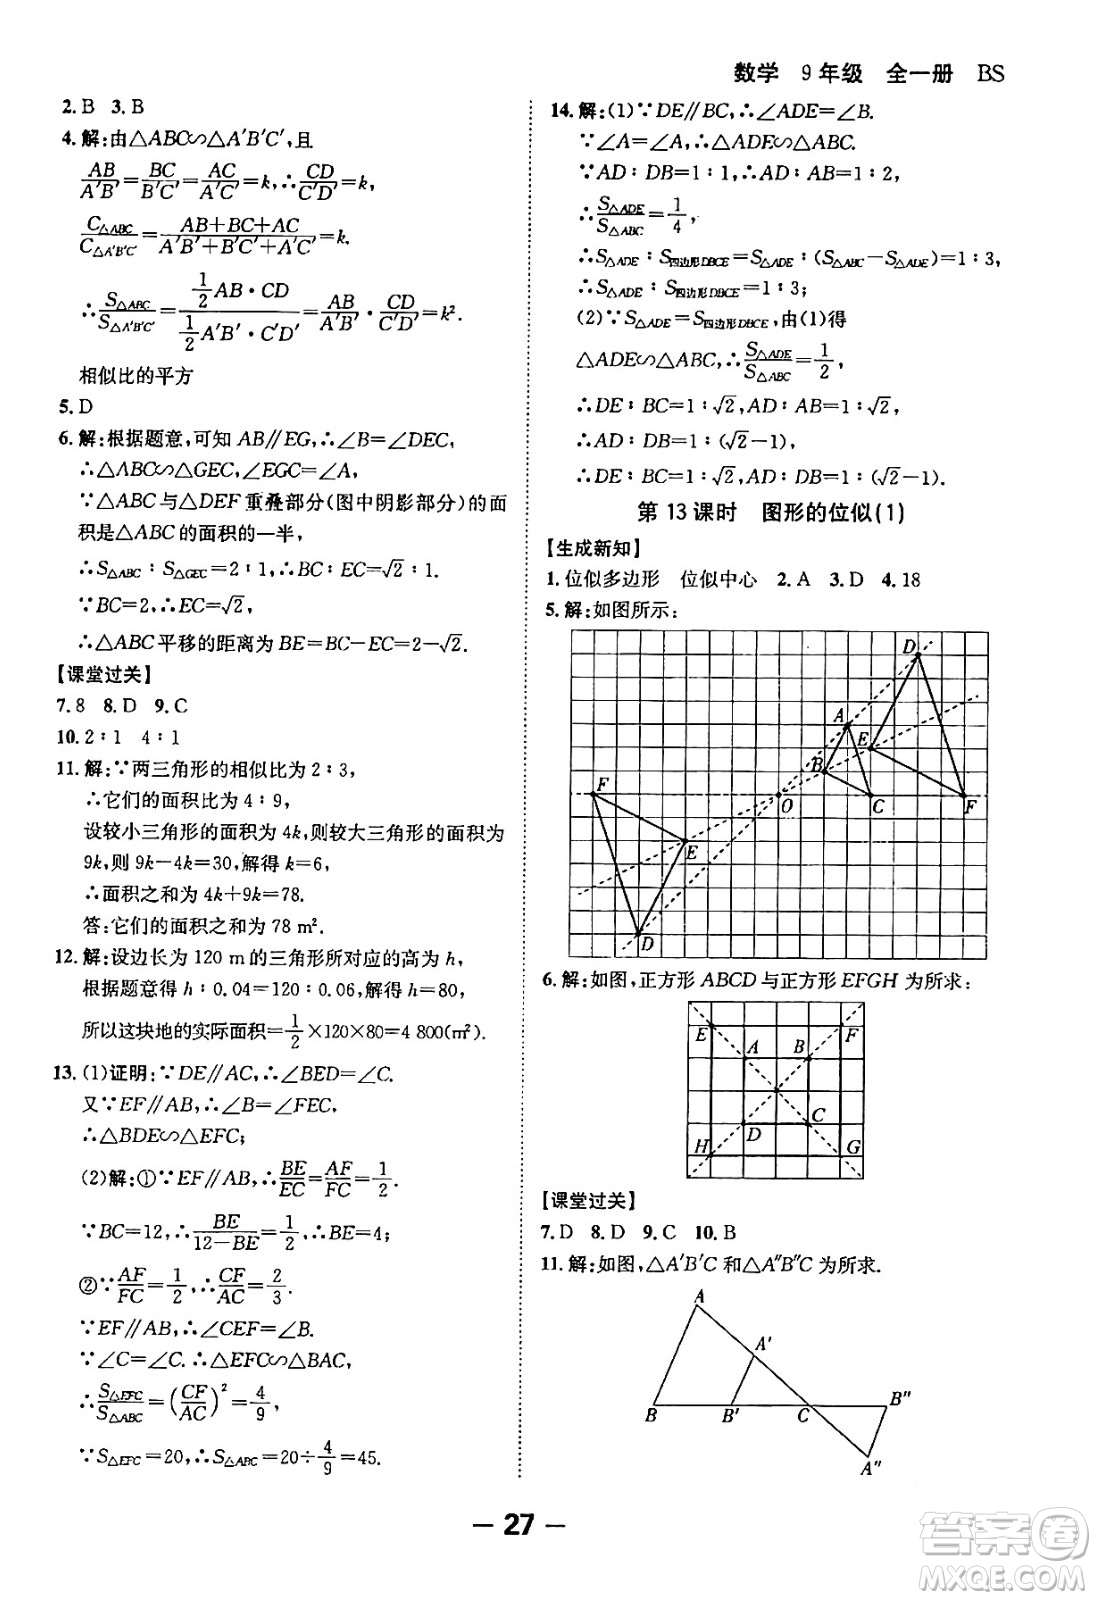 数学 9年级 全一册 BS
2. B 3. B
4. 解:由△ABC∽△A′B′C′,且
AB/A′B′=BC/B′C′=AC/A′C′=k,∴CD/C′D′=k,
C△ABC/C△A′B′C′=(AB+BC+AC)/(A′B′+B′C′+A′C′)=k.
∴S△ABC/S△A′B′C′=(1/2 AB·CD)/(1/2 A′B′·C′D′)=AB/A′B′·CD/C′D′=k².
相似比的平方
5. D
6. 解:根据题意,可知 AB∥EG,∴∠B=∠DEC,
∴△ABC∽△GEC,∠EGC=∠A,
∵△ABC与△DEF重叠部分(图中阴影部分)的面
积是△ABC的面积的一半,
∴S△ABC∶S△GEC=2∶1,∴BC∶EC=√2∶1.
∵BC=2,∴EC=√2,
∴△ABC平移的距离为BE=BC-EC=2-√2.
【课堂过关】
7. 8 8. D 9. C
10. 2∶1 4∶1
11. 解:∵两三角形的相似比为2∶3,
∴它们的面积比为4∶9,
设较小三角形的面积4k,则较大三角形的面积
9k,则9k-4k=30,解得k=6,
∴面积之和为4k+9k=78.
答:它们的面积之和为78 m².
12. 解:设边长为120 m的三角形所对应的高为h,
根据题意得h∶0.04=120∶0.06,解得h=80,
所以这块地的实际面积=1/2×120×80=4 800(m²).
13. (1)证明:∵DE∥AC,∴∠BED=∠C.
又∵EF∥AB,∴∠B=∠FEC,
∴△BDE∽△EFC;
(2)解:①∵EF∥AB,∴BE/EC=AF/FC=1/2.
∵BC=12,∴BE/(12-BE)=1/2,∴BE=4;
②∵AF/FC=1/2,∴CF/AC=2/3.
∵EF∥AB,∴∠CEF=∠B.
∵∠C=∠C.∴△EFC∽△BAC,
∴S△EFC/S△ABC=(CF/AC)²=4/9,
∵S△EFC=20,∴S△ABC=20÷4/9=45.
14. 解:(1)∵DE∥BC,∴∠ADE=∠B.
∵∠A=∠A,∴△ADE∽△ABC.
∵AD∶DB=1∶1,∴AD∶AB=1∶2,
∴S△ADE/S△ABC=1/4,
∴S△ADE∶S四边形DBCE=S△ADE∶(S△ABC-S△ADE)=1∶3,
∴S△ADE∶S四边形DBCE=1∶3;
(2)∵S△ADE=S四边形DBCE,由(1)得
△ADE∽△ABC,∴S△ADE/S△ABC=1/2,
∴DE∶BC=1∶√2,AD∶AB=1∶√2,
∴AD∶DB=1∶(√2-1),
∴DE∶BC≠AD∶DB=1∶(√2-1).
第13课时 图形的位似(1)
【生成新知】
1. 位似多边形 位似中心 2. A 3. D 4. 18
5. 解:如图所示:
D
A
E
B
F
O
C
F
E
D
6. 解:如图,正方形ABCD与正方形EFGH为所求:
E F
A B
D C
H G
【课堂过关】
7. D 8. D 9. C 10. B
11. 解:如图,△A′B′C和△A″B″C为所求.
A
A′
B B′ C B″
A″
— 27 —
答案圈
MXQE.COM